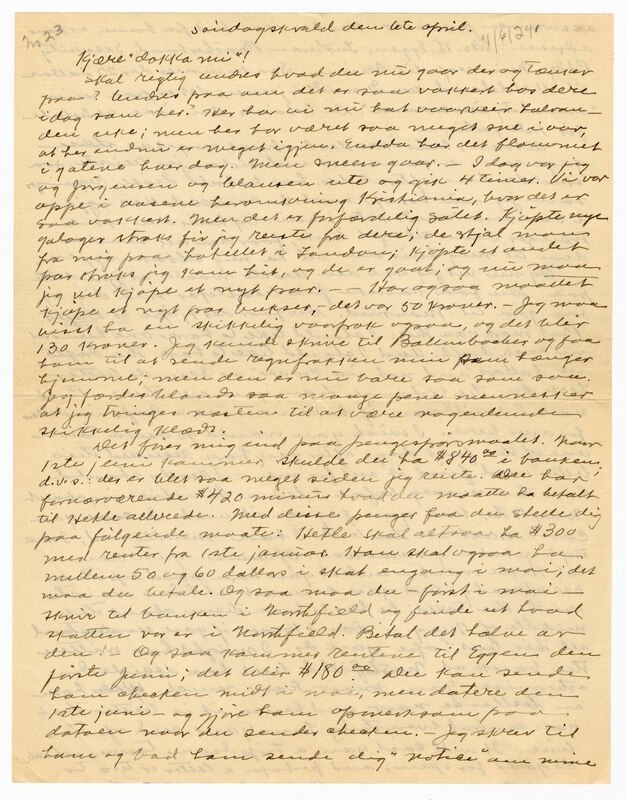 No 23
Søndagskvæld den 6te april.
4/6/24
Kjære "dokka mi"!
Skal rigtig undres hvad du nu gaar der og tænker
paa? Undres paa om det er saa vakkert hos dere
idag som her? Her har vi nu hat vaarveir halvan-
den uke; men her har været saa meget sne i vaar,
at her endnu er meget igjen. Endda har det flommet
i gatene hver dag. Men sneen gaar. – I dag var jeg
og Jørgensen og Clausen ute og gik 4 timer. Vi var
oppe i aasene heromkring Kristiania, hvor det er
saa vakkert. Men det er forfærdelig sølet. Kjøpte nye
galoger straks før jeg reiste fra dere; de stjal man
fra mig paa hotellet i London; kjøpte et andet
par straks jeg kom hit, og de er gaat; og nu maa
jeg vel kjøpe et nyt par. – – Har ogsaa maattet
kjøpe et nyt par bukser, det var 50 kroner. – Jeg maa
visst ha en skikkelig vaarfrak ogsaa, og det blir
130 kroner. Jeg kunde skrive til Ballenbacher og faa
ham til at sende regnfrakken min som hænger
hjemme; men den er nu bare saa som saa.
Jeg færdes blandt saa mange pene mennesker
at jeg tvinges næsten til at være nogenlunde
skikkelig klædt.
Det fører mig ind paa pengespørsmaalet. Naar
1ste juni kommer, skulde du ha $840.00 i banken;
d.v.s.: der er blet saa meget siden jeg reiste. Dere har
fornærværende $420 minus hvad du maatte ha betalt
til Hetle allerede. Med disse penger faa du stelle dig
paa følgende maate: Hetle skal altsaa ha $300
med renter fra 1ste januar. Han skal ogsaa ha
mellem 50 og 60 dollars i skat engang i mai; det
maa du betale. Og saa maa du – først i mai –
skrive til banken i Northfield og finde ut hvad
skatten vor er i Northfield. Betal det halve av
den! Og saa kommer rentene til Eggen den
første juni; det blir $180.00 Du kan sende
ham checken midt i mai, men datere den
1ste juni – og gjøre ham opmerksom paa
datoen naar du sender checken. – Jeg skrev til
ham og bad ham sende dig "notice" om mine